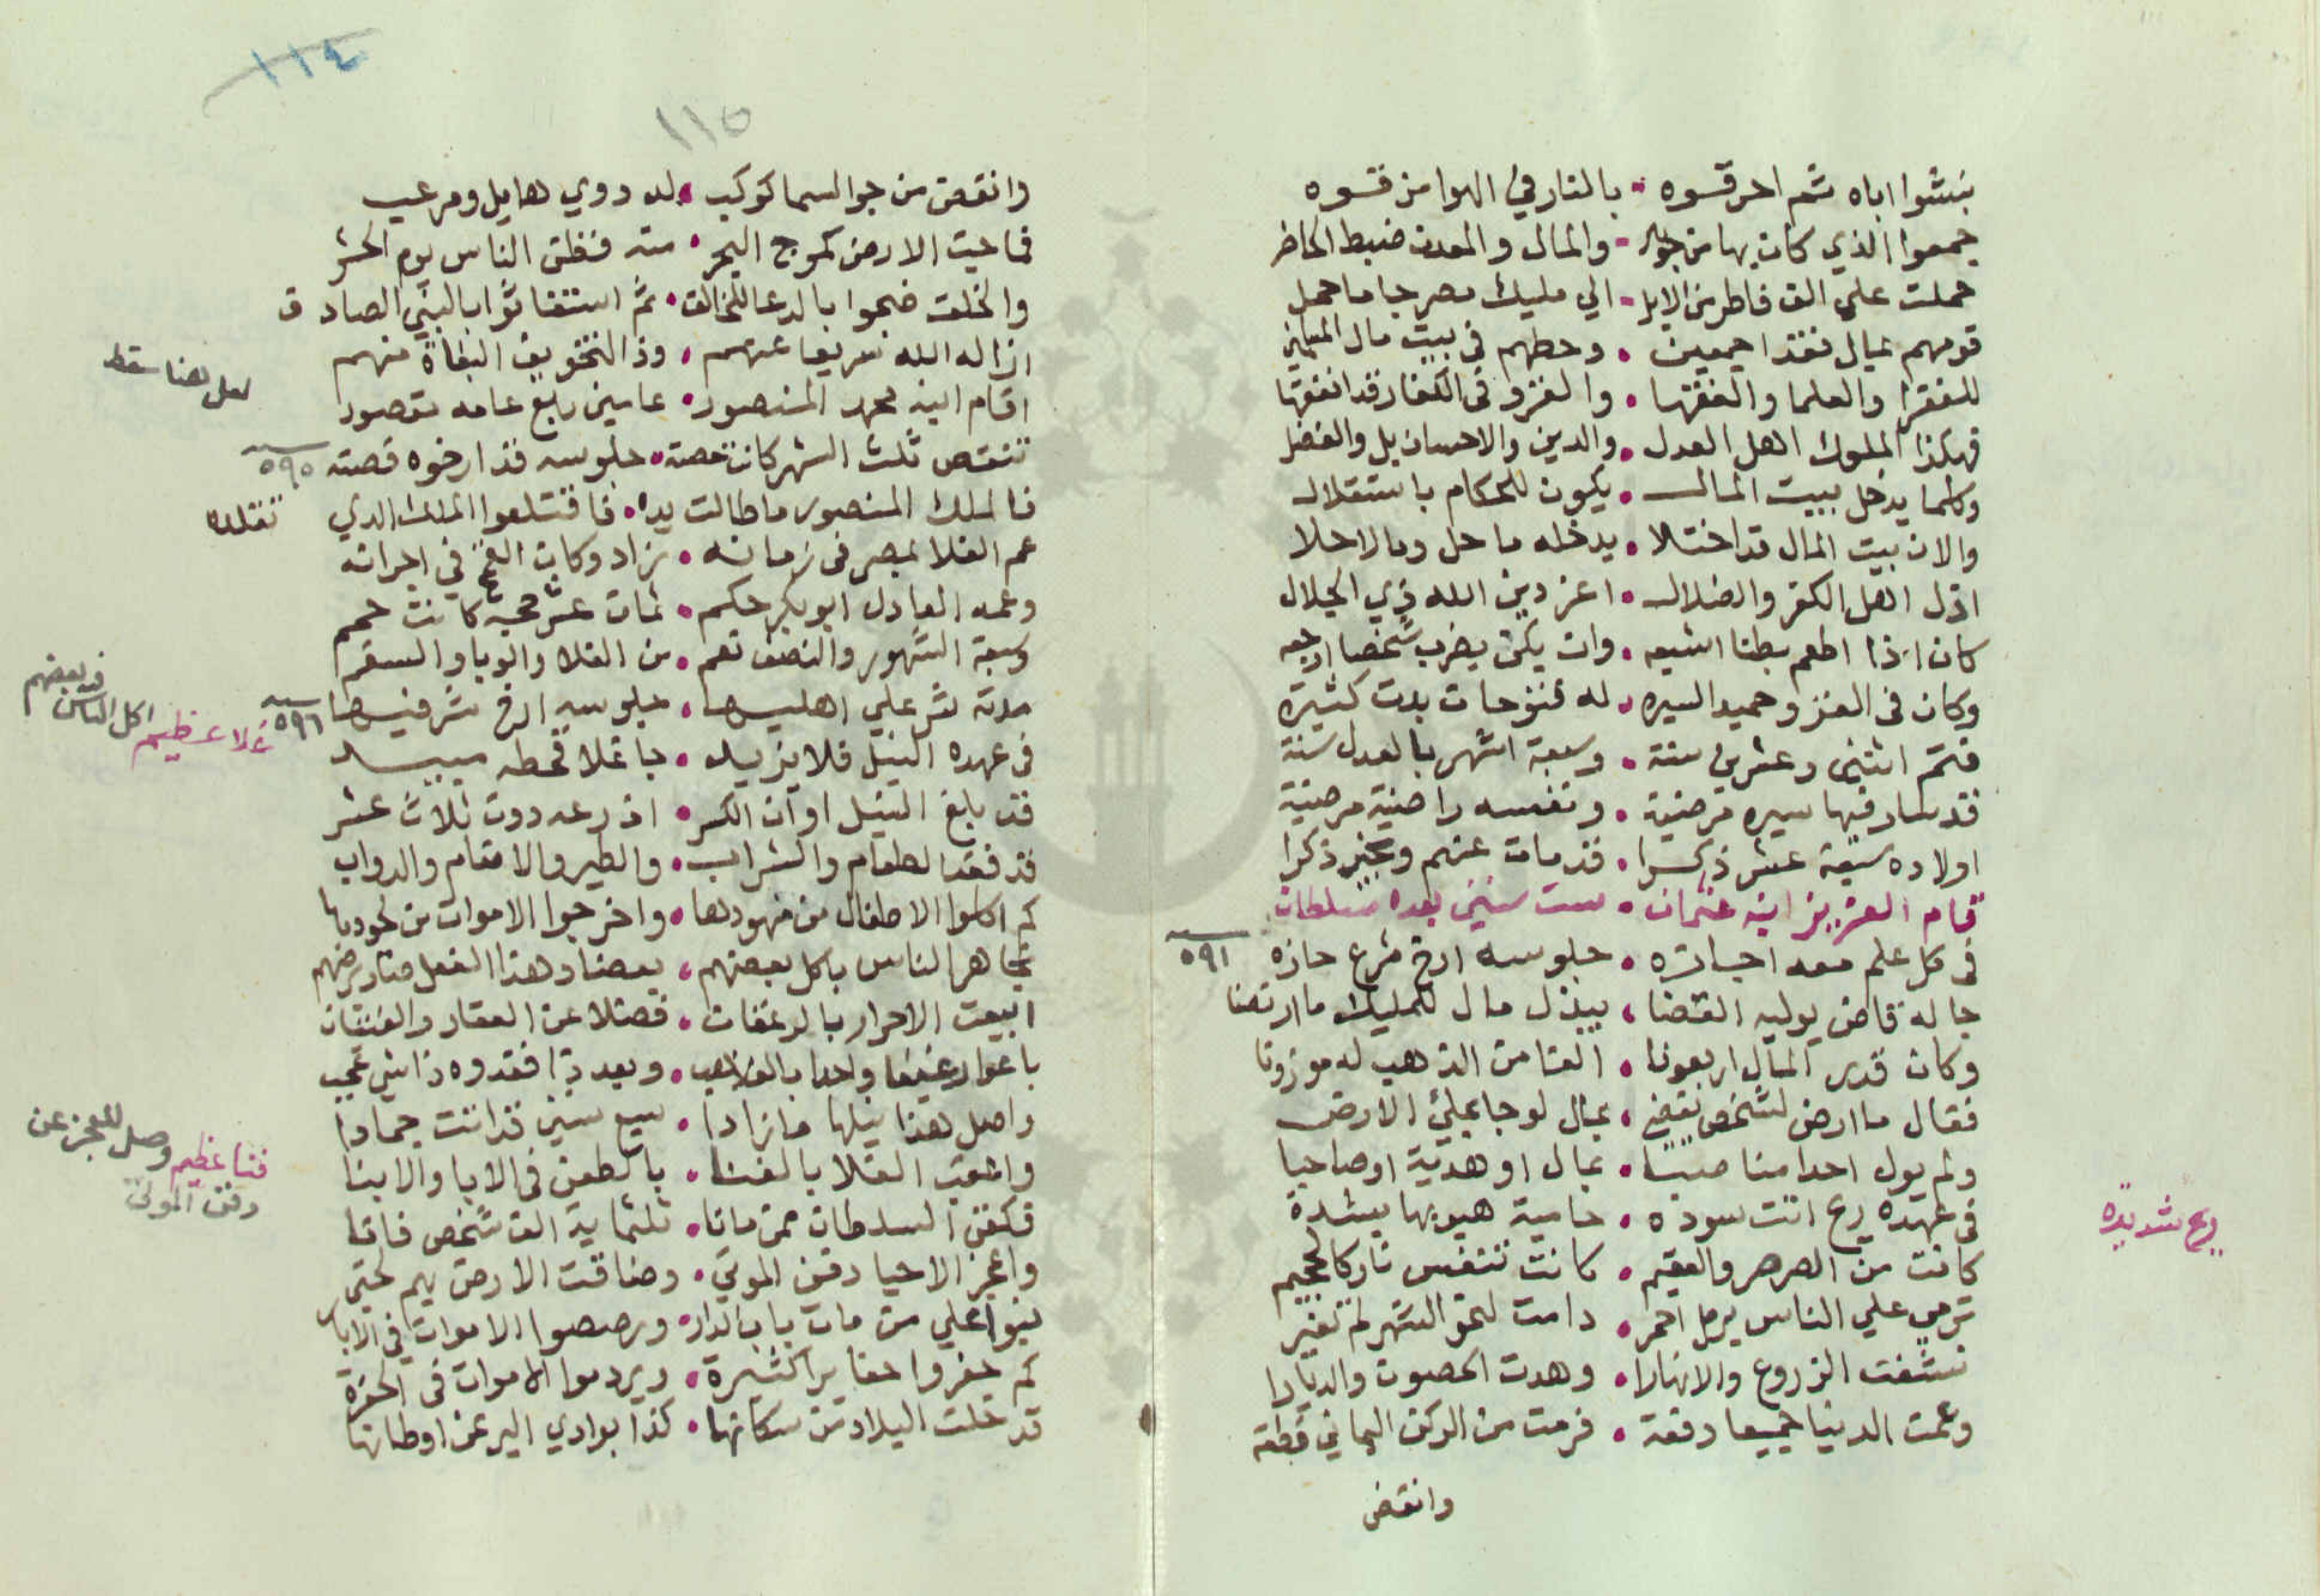 نبشوا اباه ثم احرقوه • بالنار في الهوا من فوقه
جمعوا الذي كان بها من • والمال والمعدن ضبط الحاضر
حملت علي الف فاطر من الابل • الي مليك مصر جا ما حمل
قومهم بمال نقدا جمعين • وحطهم في بيت مال المسلمين
للفقرا والعلما والفقها • والغزو في الكفار قد انفقها
فهكذا الملوك اهل العدل • والدين والاحسان بل والفضل
وكلما يدخل ببيت المال • يكون للحكام باستقلال
والان بيت المال قد اختلا • يدخله ما حل وما لا حلا
اذل اهل الكفر والضلال • اعز دين الله ذي الجلال
كان اذا اطعم بطنا اشبعه • وان يكن يضرب شخصا اوجعه
وكان في الغزو حميد السيره • له فتوحات بدت كثيرة
فتم اثنين وعشرين سنة • وسبعة اشهر بالعدل سنة
قد سار فيها سيره مرضية • ونفسه راضية مرضية
اولاده سبعة عشر ذكرا • قد مات عنهم وبخير ذكرا
قام العزيز ابنه عثمان • ست سنين بعده سلطان
في كل علم معه اجازه • جلوسه ارخ شرع حازه ٥٩١
جا له قاض يوليه القضا • ببذل مال للمليك ما ارتضا
وكان قدر المال اربعونا • الفا من الذهب له موزونا
فقال ما ارض لشخص يقضي • بمال لو جا بملئ الارض
ولم يول احدا منا صبيا • بمال او هدية او صاحبا
في عهده ريح اتت سوده • حامية هبوبها بشدة
كانت من الصرصر والعقيم • كانت تتنفس نار كالجحيم
ترمي علي الناس برمل احمر • دامت لنحو الشهر لم تغير
نشفت الزروع والانهارا • وهدت الحصون والديارا
وعمت الدنيا جميعا دفعة • فرمت من الركن اليماني قطعة
وانقض
ريح شديده
١١٤
١١٥
وانقض من جو السما كوكب • له دوي هايل ومرعب
فماجت الارض كموج البحر • منه فظن الناس يوم الحشر
والخلق ضجوا بالدعا للخالق • ثم استغاثوا بالنبي الصادق
ازاله الله سريعا عنهم • وذا لتخويف البغاة منهم
لعل هنا سقط
اقام ابنه محمد المنصور • عامين رابع عامه بقصور
تنقص ثلث الشهر كانت حصته • جلوسه قد ارخوه قصته ٥٩٥
فالملك المنصور ما طالت يداه • فاقتلعوا الملك الذي تقلده
عم الغلا لمصر في زمانه • زاد وكان العم في اجرانه
وعمه العادل ابو بكر حكم • ثمان عشر حجة كانت حكم
وسبعة الشهور والنصف نعم • من الغلا والوبا والسقم
مدته شر علي اهليها • جلوسه ارخ شر فيها ٥٩٦
غلا عظيم اكل الناس فيه بعضهم
في عهده النيل فلا يزيد • جا غلا قحطه يبيد
قد بلغ النيل اوان الكسر • اذرعه دون ثلاث عشر
قد فقد الطعام والشراب • والطير والانعام والدواب
كم اكلوا الاطفال من مهودها • واخرجوا الاموات من لحودها
تجاهر الناس باكل بعضهم • بعضا وهذا الفعل صار فرضهم
ابيعت الاحرار بالرغفان • فضلا عن العقار والفتيان
باعوا رغيفا واحدا بالف ذهب • وبعد ذا فقدوه ذا شي عجب
واصل هذا نيلها ما زادا • سبع سنين قد اتت جمادا
واعقب الغلا بالفنا • بالطعن في الابا والابنا
فنا عظيم وصل للعجز عن دفن الموتى
فكفن السلطان ممن ماتا • ثلثماية الف شخص فاتا
واعجز الاحيا دفن الموتي • وضاقت الارض بهم حتي
بنيوا علي من مات باب الدار • ورصصوا الاموات في الابار
كم حفروا حفايرا كثيرة • ويردموا الاموات في الحفرة
قد خلت البلاد من سكانها • كذا بوادي البر عن اوطانها